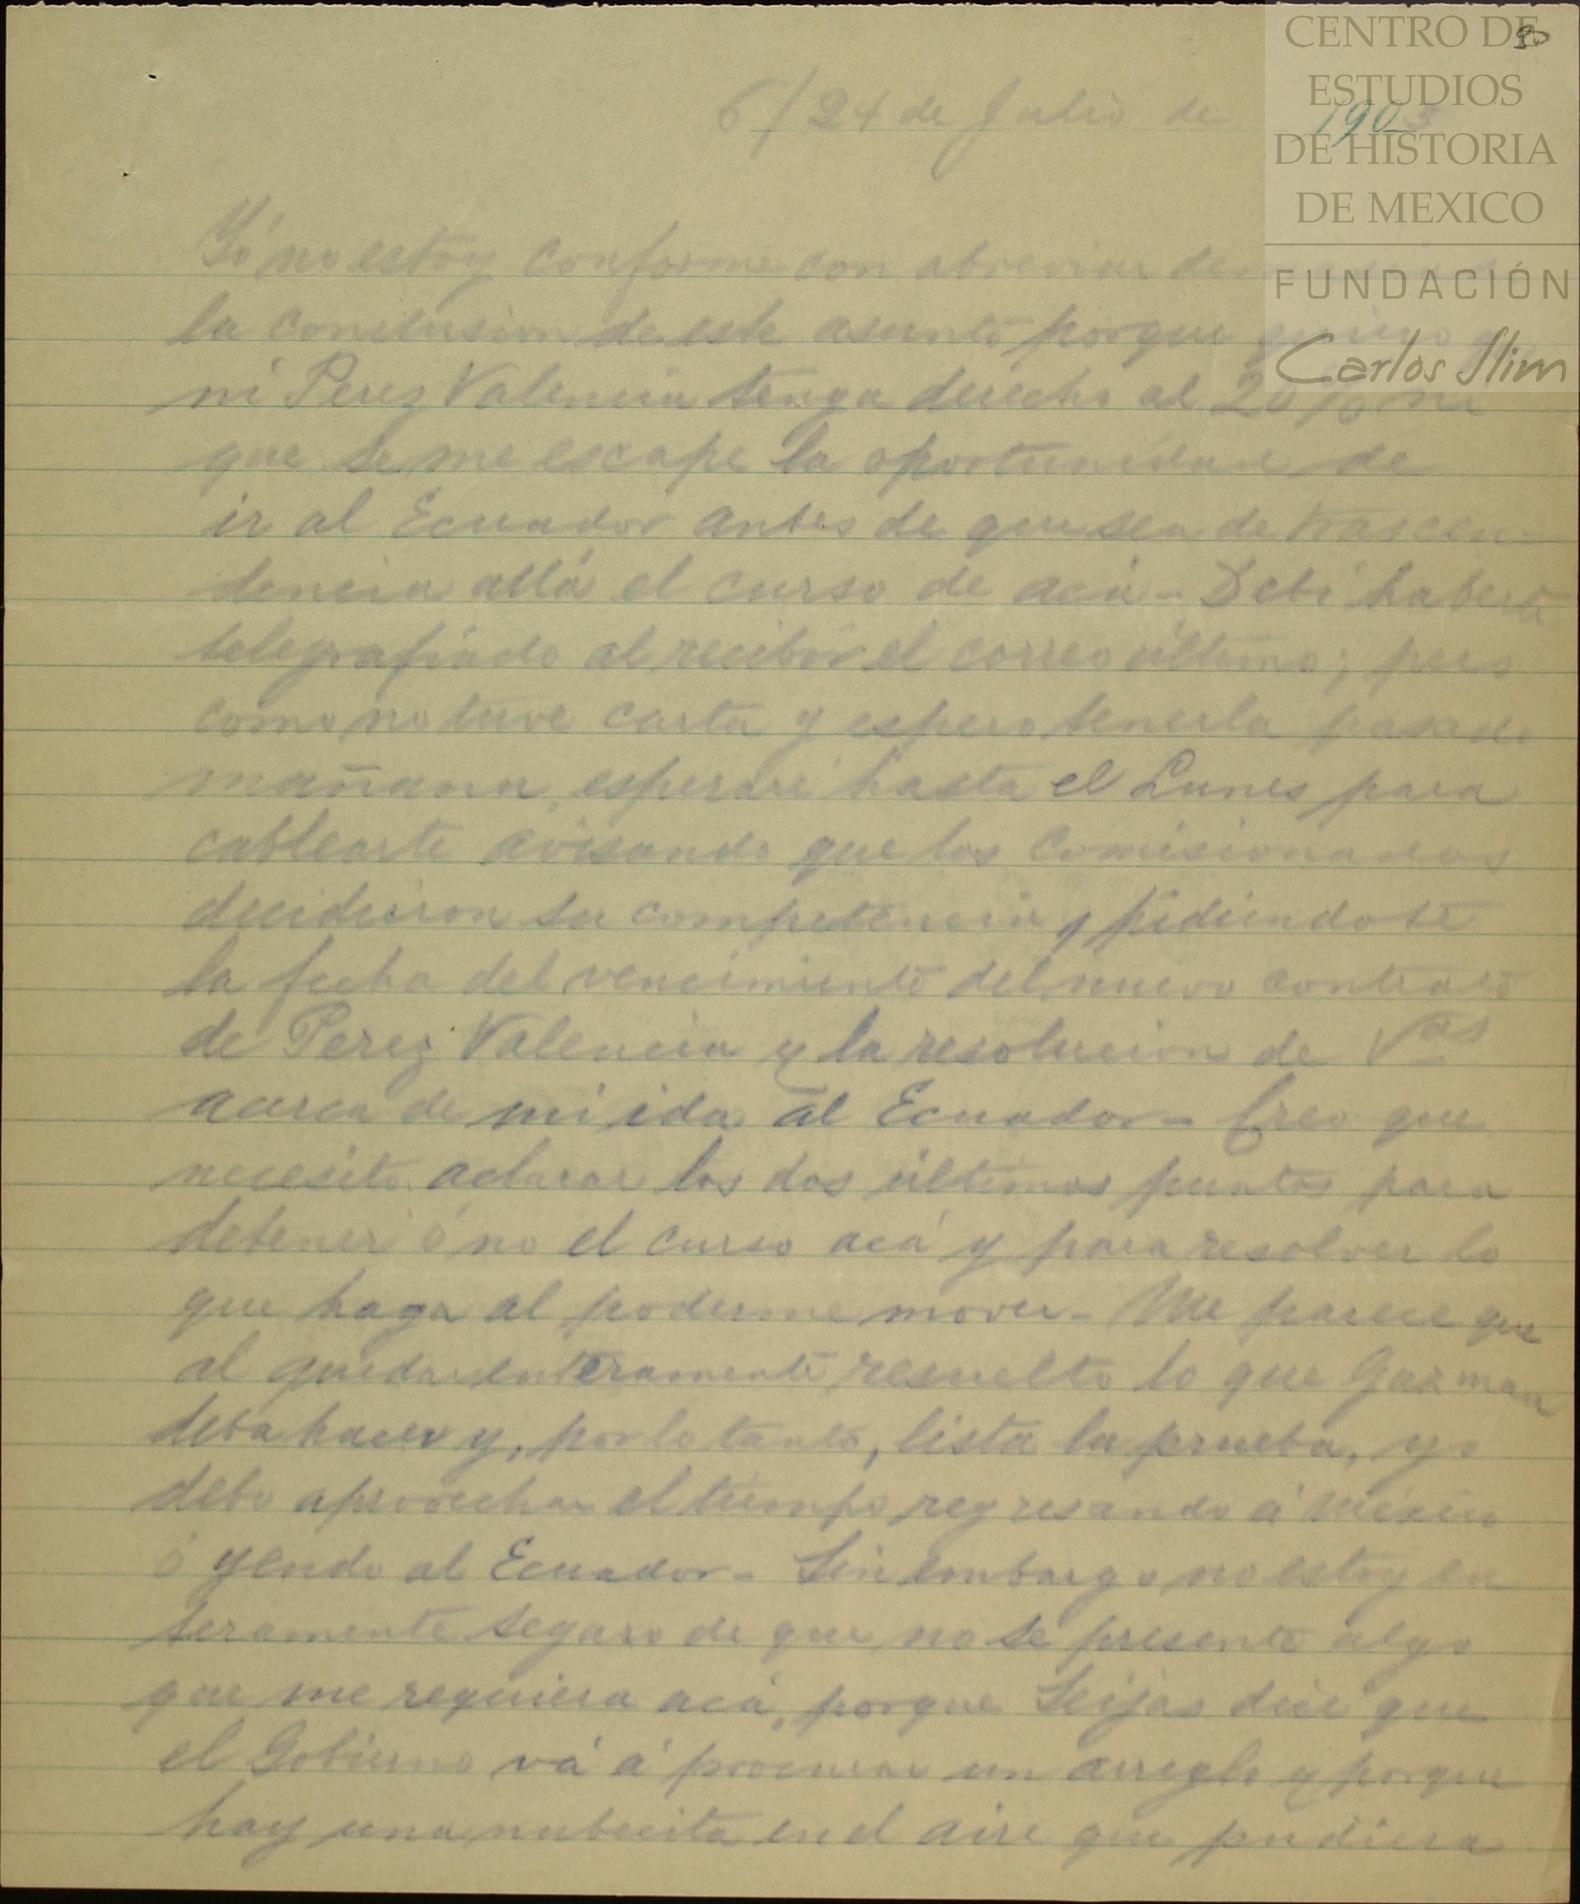 90
CENTRO DE
ESTUDIOS
DE HISTORIA
DE MEXICO
FUNDACIÓN
Carlos Slim
6/24 de Julio de 190
Yó no estoy conforme con abreviar
la conclusion de este asunto porque quiero
ni Perez Valencia tenga derecho al 20% ni
que se me escape la oportunidad de
ir al Ecuador antes de que sea de trascen-
dencia allá el curso de acá - Debí haberte
telegrafiado al recibir el correo último; pero
como no tuve carta y espero tenerla pasado
mañana, esperaré hasta el Lunes para
cablearte avisando que los Comisionados
decidieron su competencia y pidiendote
la fecha del vencimiento del nuevo contrato
de Perez Valencia y la resolucion de Vds
acerca de mi ida al Ecuador - Creo que
necesito aclarar los dos últimos puntos para
detener ó no el curso acá y para resolver lo
que haga al poderme mover - Me parece que
al quedar enteramente resuelto lo que Guzman
deba hacer y, por lo tanto, lista la prueba, yo
debo aprovechar el tiempo regresando á México
ó yendo al Ecuador - Sin embargo no estoy en
teramente seguro de que no se presente algo
que me requiera acá, porque Seijas dice que
el Gobierno vá á procurar un arreglo y porque
hay una nubecita en el aire que pudiera